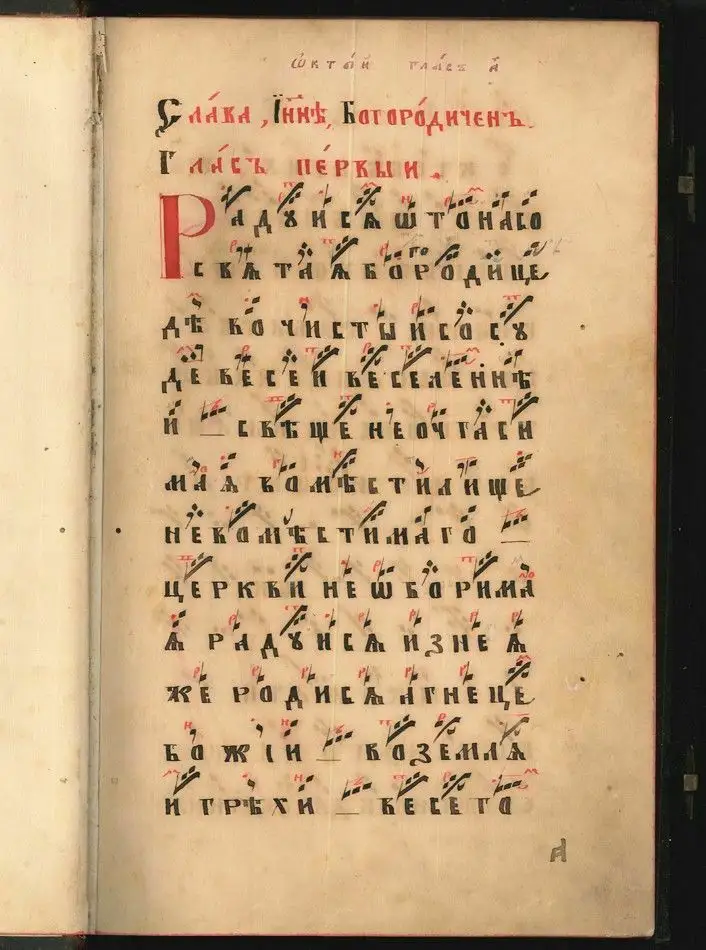 Ѡктѡй гласъ а҃
Слава, I ннѣ, Богородиченъ.
Гласъ первыи.
Радꙋисѧ ѿ насо
свѧтаѧ богородице
дѣво чистыи сосꙋ
де всеи вселеннѣ
и свѣще не
маѧ вомѣстилище
невомѣстимаго
церкви неѡборима
ѧ радꙋисѧ изнеѧ
же родисѧ агнеце
божiи воземлѧ
и грѣхи весего